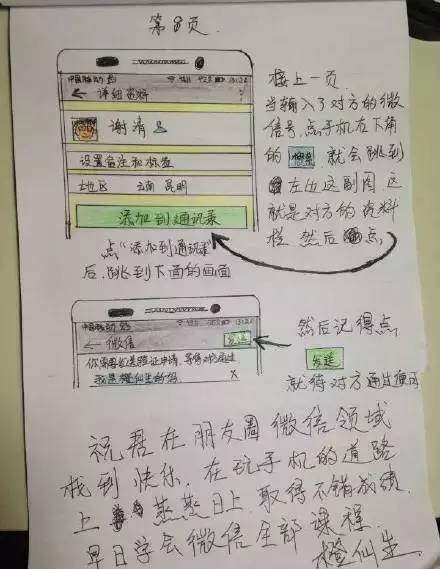 第8页
中国移动
13:22
← 详细资料
谢清
设置备注和标签
地区 云南 昆明
添加到通讯录
点“添加到通讯录”
后,跳到下面的画面
接上一页
当输入了对方的微
信号,点手机右下角
的 搜索 就会跳到
左边这副图 这
就是对方的资料
栏 然后 点
中国移动
13:22
← 微信
发送
你需要发送验证申请,等待对方通过
我是橙仙生的妈 X
然后记得点
发送
就待对方通过便可
祝君在朋友圈微信领域
找到快乐,在玩手机的道路
上 蒸蒸日上,取得不错成绩,
早日学会微信全部课程
橙仙生